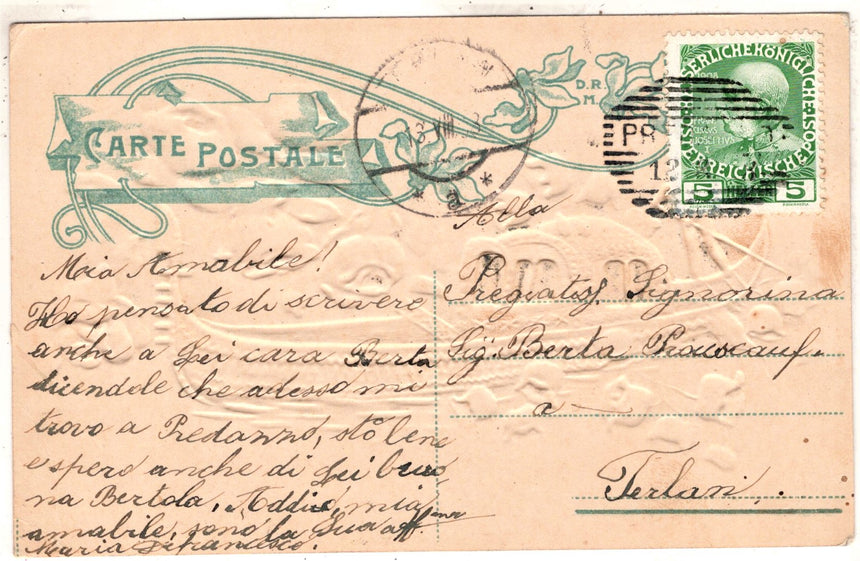 CARTE POSTALE
D.R.
M.
KAISERLICHE KÖNIGLICHE ÖSTERREICHISCHE
1908
5 5
PR
12
3 VIII
* a *
Mia Amabile!
Ho pensato di scrivere
anche a Lei cara Berta
dicendole che adesso mi
trovo a Predazzo, stò bene
e spero anche di Lei buo
na Bertola, Addio, mia
amabile, sono la Sua aff.
Maria Defrancesco.
Alla
Pregiatiss Signorina
Sig. Berta
a
Terlan.